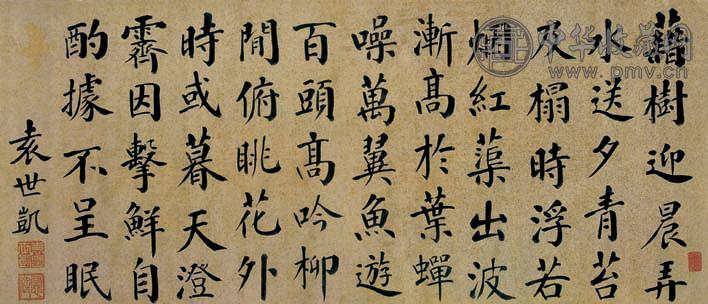 藉樹迎晨弄
水送夕青苔
夾榻時浮若
烟紅蕖出波
漸高於葉蟬
噪萬翼魚遊
百頭高吟柳
間俯眺花外
時或暮天澄
霽因擊鮮自
酌據不呈眠
袁世凱
中华收藏网
www.pmv.cn